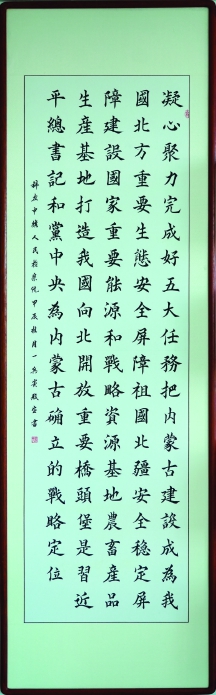 凝心聚力完成好五大任務把内蒙古建設成為我
國北方重要生態安全屏障祖國北疆安全穩定屏
障建設國家重要能源和戰略資源基地農畜産品
生産基地打造我國向北開放重要橋頭堡是習近
平總書記和黨中央為内蒙古确立的戰略定位
甲辰桂月